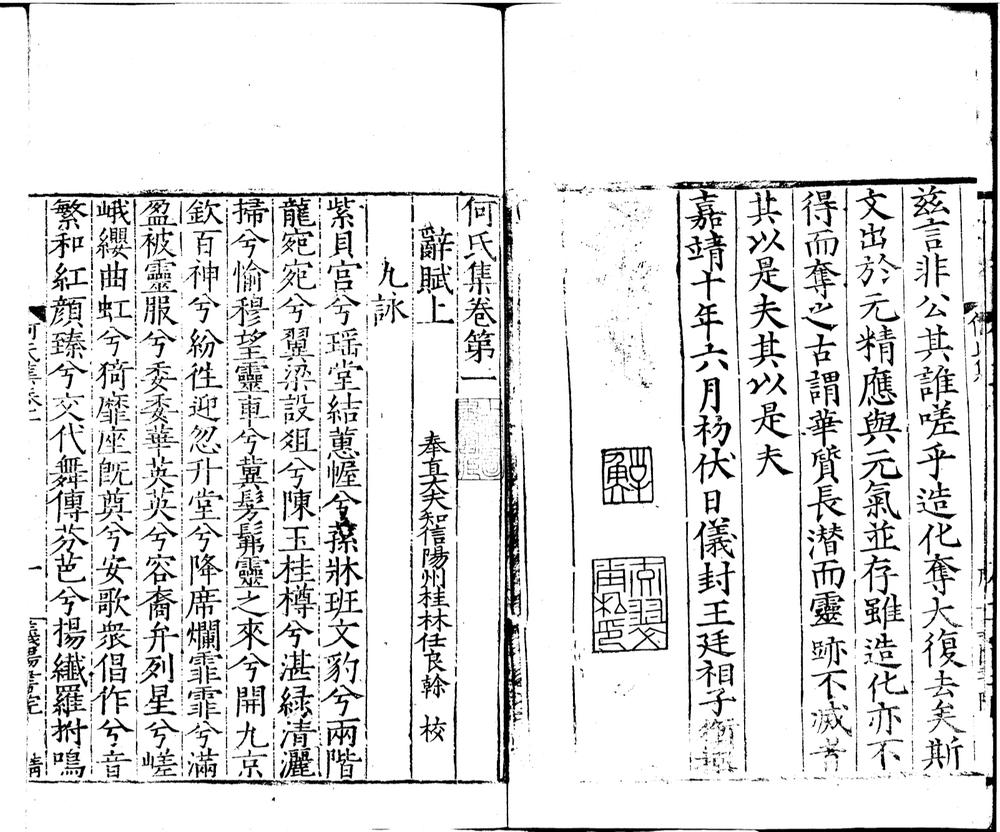 茲言非公其誰嗟乎造化奪大復去矣斯
文出於元精應與元氣並存雖造化亦不
得而奪之古謂華質長潜而靈跡不滅者
其以是夫其以是夫
嘉靖十年六月初伏日儀封王廷相子衡
何氏集卷第一
辭賦上
奉直大夫知信陽州桂林任良榦 校
九詠
紫貝宮兮瑶堂結蕙幄兮蓀牀班文豹兮兩階
龍宛宛兮翼梁設俎兮陳玉桂樽兮湛緑清灑
掃兮愉穆望靈車兮冀髣髴靈之來兮開九京
欽百神兮紛徃迎忽升堂兮降席爛霏霏兮滿
盈被靈服兮委委華英英兮容裔弁列星兮嵯
峨纓曲虹兮猗靡座旣奠兮安歌衆倡作兮音
繁和紅顔臻兮交代舞傳芬芭兮揚纖羅拊鳴
何氏集卷一
一
義陽書院